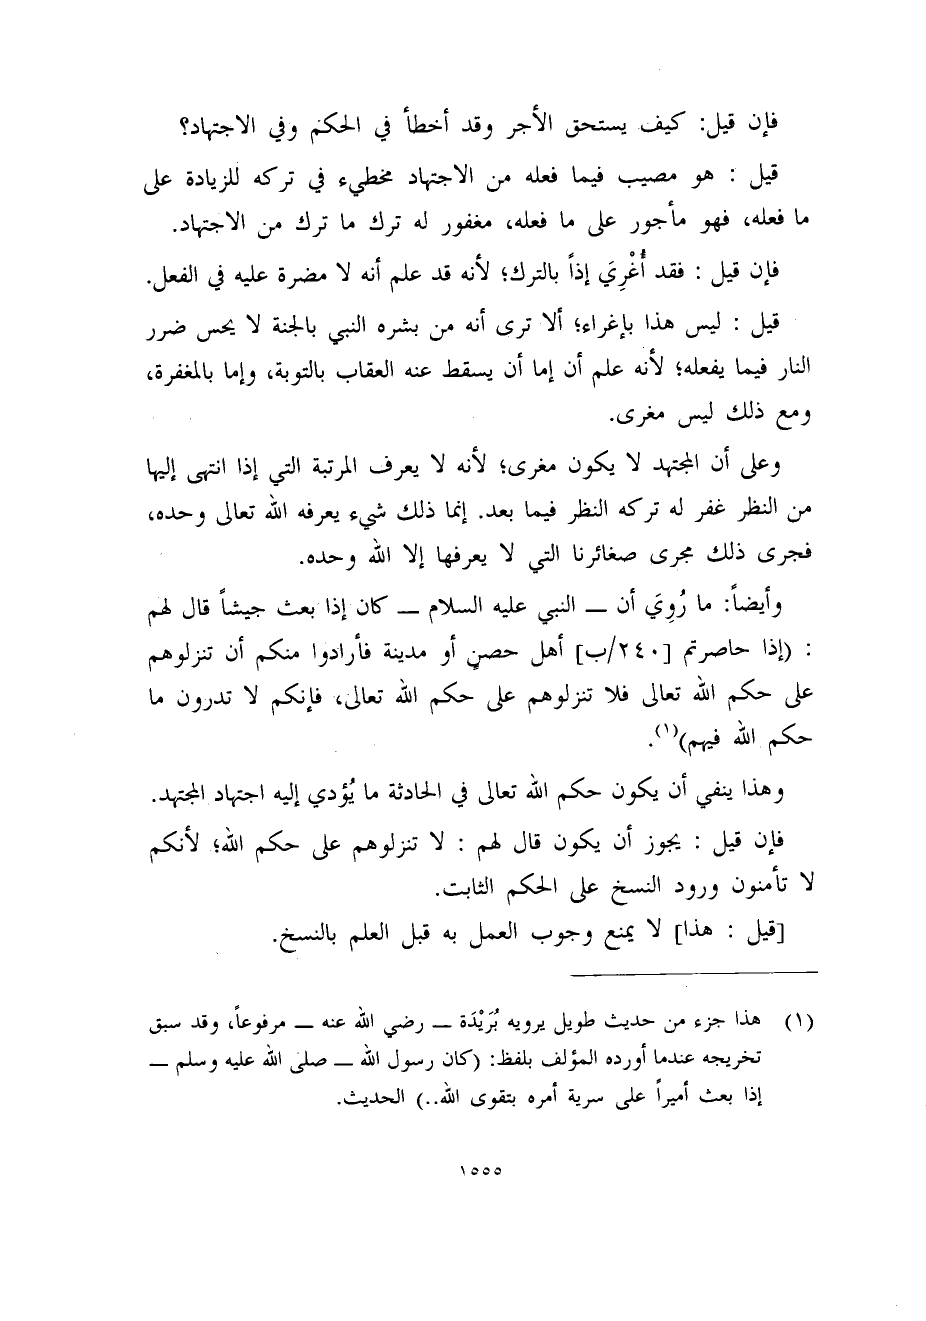 فإن قيل: كيف يستحق الأجر وقد أخطأ في الحكم وفي الاجتهاد؟
قيل : هو مصيب فيما فعله من الاجتهاد مخطيء في تركه للزيادة على
ما فعله، فهو مأجور على ما فعله، مغفور له ترك ما ترك من الاجتهاد.
فإن قيل : فقد أُغْرِيَ إذاً بالترك؛ لأنه قد علم أنه لا مضرة عليه في الفعل.
قيل : ليس هذا بإغراء؛ ألا ترى أنه من بشره النبي بالجنة لا يحس ضرر
النار فيما يفعله؛ لأنه علم أن إما أن يسقط عنه العقاب بالتوبة، وإما بالمغفرة،
ومع ذلك ليس مغرى.
وعلى أن المجتهد لا يكون مغرى؛ لأنه لا يعرف المرتبة التي إذا انتهى إليها
من النظر غفر له تركه النظر فيما بعد. إنما ذلك شيء يعرفه الله تعالى وحده،
فجرى ذلك مجرى صغائرنا التي لا يعرفها إلا الله وحده.
وأيضاً: ما رُوِيَ أن ــ النبي عليه السلام ــ كان إذا بعث جيشاً قال لهم
: (إذا حاصرتم [٢٤٠/ب] أهل حصنٍ أو مدينة فأرادوا منكم أن تنزلوهم
على حكم الله تعالى فلا تنزلوهم على حكم الله تعالى، فإنكم لا تدرون ما
حكم الله فيهم)(١).
وهذا ينفي أن يكون حكم الله تعالى في الحادثة ما يُؤدي إليه اجتهاد المجتهد.
فإن قيل : يجوز أن يكون قال لهم : لا تنزلوهم على حكم الله؛ لأنكم
لا تأمنون ورود النسخ على الحكم الثابت.
[قيل : هذا] لا يمنع وجوب العمل به قبل العلم بالنسخ.
(١) هذا جزء من حديث طويل يرويه بُرَيْدَة ــ رضي الله عنه ــ مرفوعاً، وقد سبق
تخريجه عندما أورده المؤلف بلفظ: (كان رسول الله ــ صلى الله عليه وسلم ــ
إذا بعث أميراً على سرية أمره بتقوى الله..) الحديث.
١٥٥٥